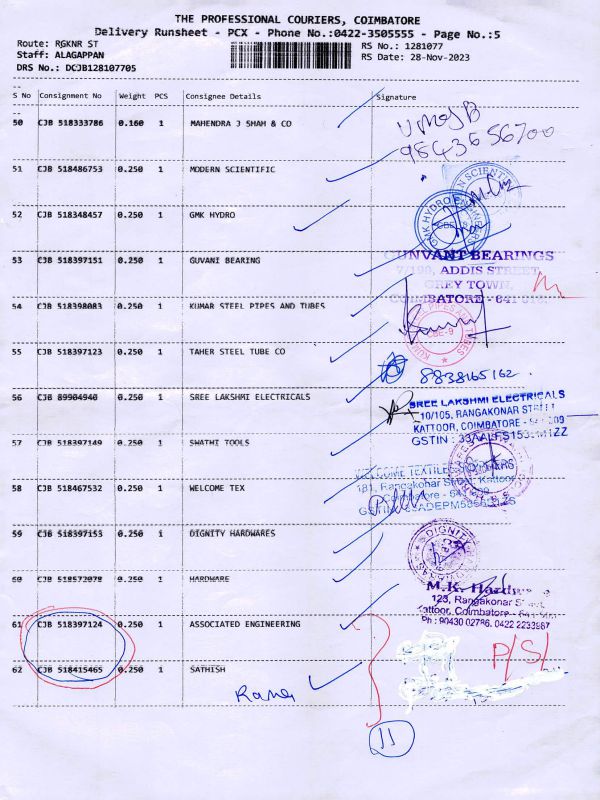 THE PROFESSIONAL COURIERS, COIMBATORE
Delivery Runsheet - PCX - Phone No.:0422-3505555 - Page No.:5
Route: RGKNR ST RS No.: 1281077
Staff: ALAGAPPAN RS Date: 28-Nov-2023
DRS No.: DCJB128107705
S No Consignment No Weight PCS Consignee Details Signature
50 CJB 518333786 0.160 1 MAHENDRA J SHAH & CO
9843656700
51 CJB 518486753 0.250 1 MODERN SCIENTIFIC
52 CJB 518348457 0.250 1 GMK HYDRO
GMK HYDRO ENGINEERS
53 CJB 518397151 0.250 1 GUVANI BEARING
GUNVANT BEARINGS
7/199, ADDIS STREET,
GREY TOWN,
COIMBATORE - 641
54 CJB 518398083 0.250 1 KUMAR STEEL PIPES AND TUBES
CBE-9
55 CJB 518397123 0.250 1 TAHER STEEL TUBE CO
8838165162
56 CJB 89904940 0.250 1 SREE LAKSHMI ELECTRICALS
SREE LAKSHMI ELECTRICALS
10/105, RANGAKONAR STREET
KATTOOR, COIMBATORE -
GSTIN :
57 CJB 518397149 0.250 1 SWATHI TOOLS
58 CJB 518467532 0.250 1 WELCOME TEX
WELCOME TEXTILES
181, Rangakonar Street, Kattoor
Coimbatore - 641 009
59 CJB 518397153 0.250 1 DIGNITY HARDWARES
DIGNITY
60 CJB 518572078 0.250 1 HARDWARE
M.K.
123, Rangakonar St
Kattoor, Coimbatore - 641
Ph : 90430 02786, 0422 2233987
61 CJB 518397124 0.250 1 ASSOCIATED ENGINEERING
P/S/
62 CJB 518415465 0.250 1 SATHISH
11